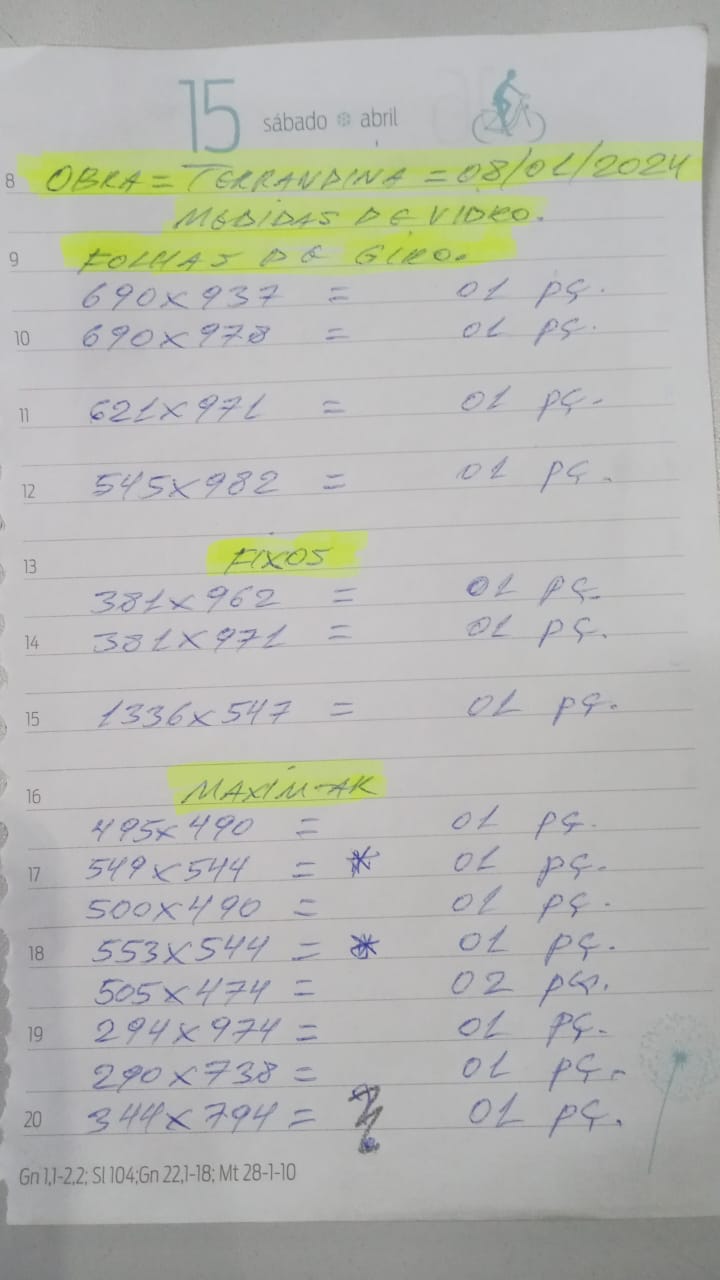 15 sábado abril
8 OBRA = TERRANDINA = 08/01/2024
MEDIDAS DE VIDRO.
9 FOLHAS DE GIRO.
690x937 = 01 pç.
10 690x978 = 01 pç.
11 621x971 = 01 pç.
12 545x982 = 01 pç.
13 FIXOS
381x962 = 01 pç.
14 381x971 = 01 pç.
15 1336x547 = 01 pç.
16 MAXIM-AR
495x490 = 01 pç.
17 549x544 = * 01 pç.
500x490 = 01 pç.
18 553x544 = * 01 pç.
505x474 = 02 pçs.
19 294x974 = 01 pç.
290x738 = 01 pç.
20 344x794 = 01 pç.
Gn 1,1-2,2; Sl 104;Gn 22,1-18; Mt 28-1-10